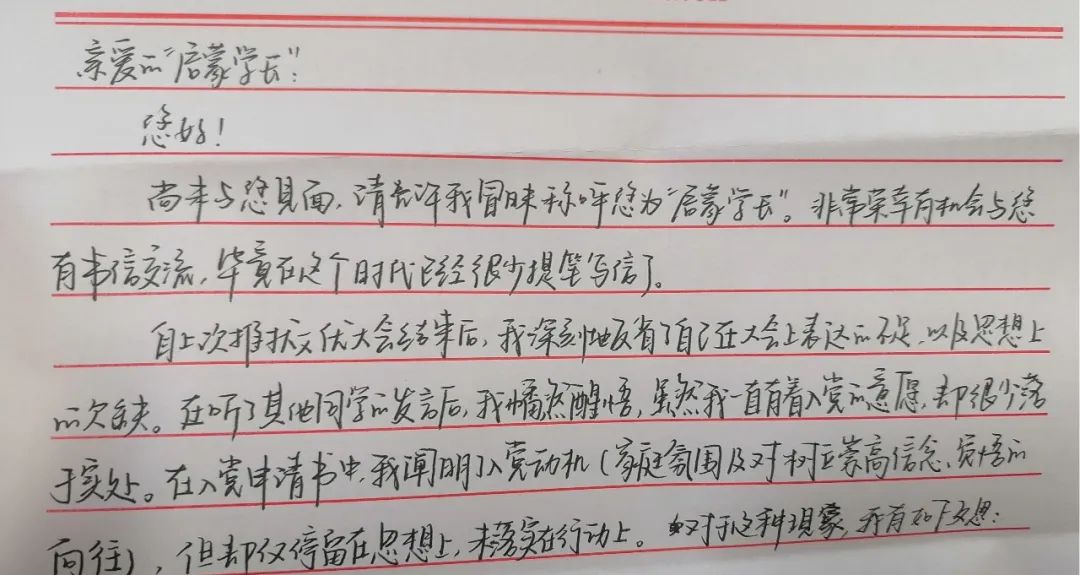 亲爱的“启蒙学长”:
您好!
尚未与您见面,请允许我冒昧称呼您为“启蒙学长”。非常荣幸有机会与您
有书信交流,毕竟在这个时代已经很少提笔写信了。
自上次推扶文优大会结束后,我深刻地反省了自己在大会上表达的不足,以及思想上
的欠缺。在听了其他同学的发言后,我幡然醒悟,虽然我一直有着入党的意愿,却很少落
于实处。在入党申请书中,我阐明了入党动机(家庭氛围及对树立崇高信念、觉悟的
向往),但却仅停留在思想上,未落实在行动上。对于这种现象,我有如下反思: